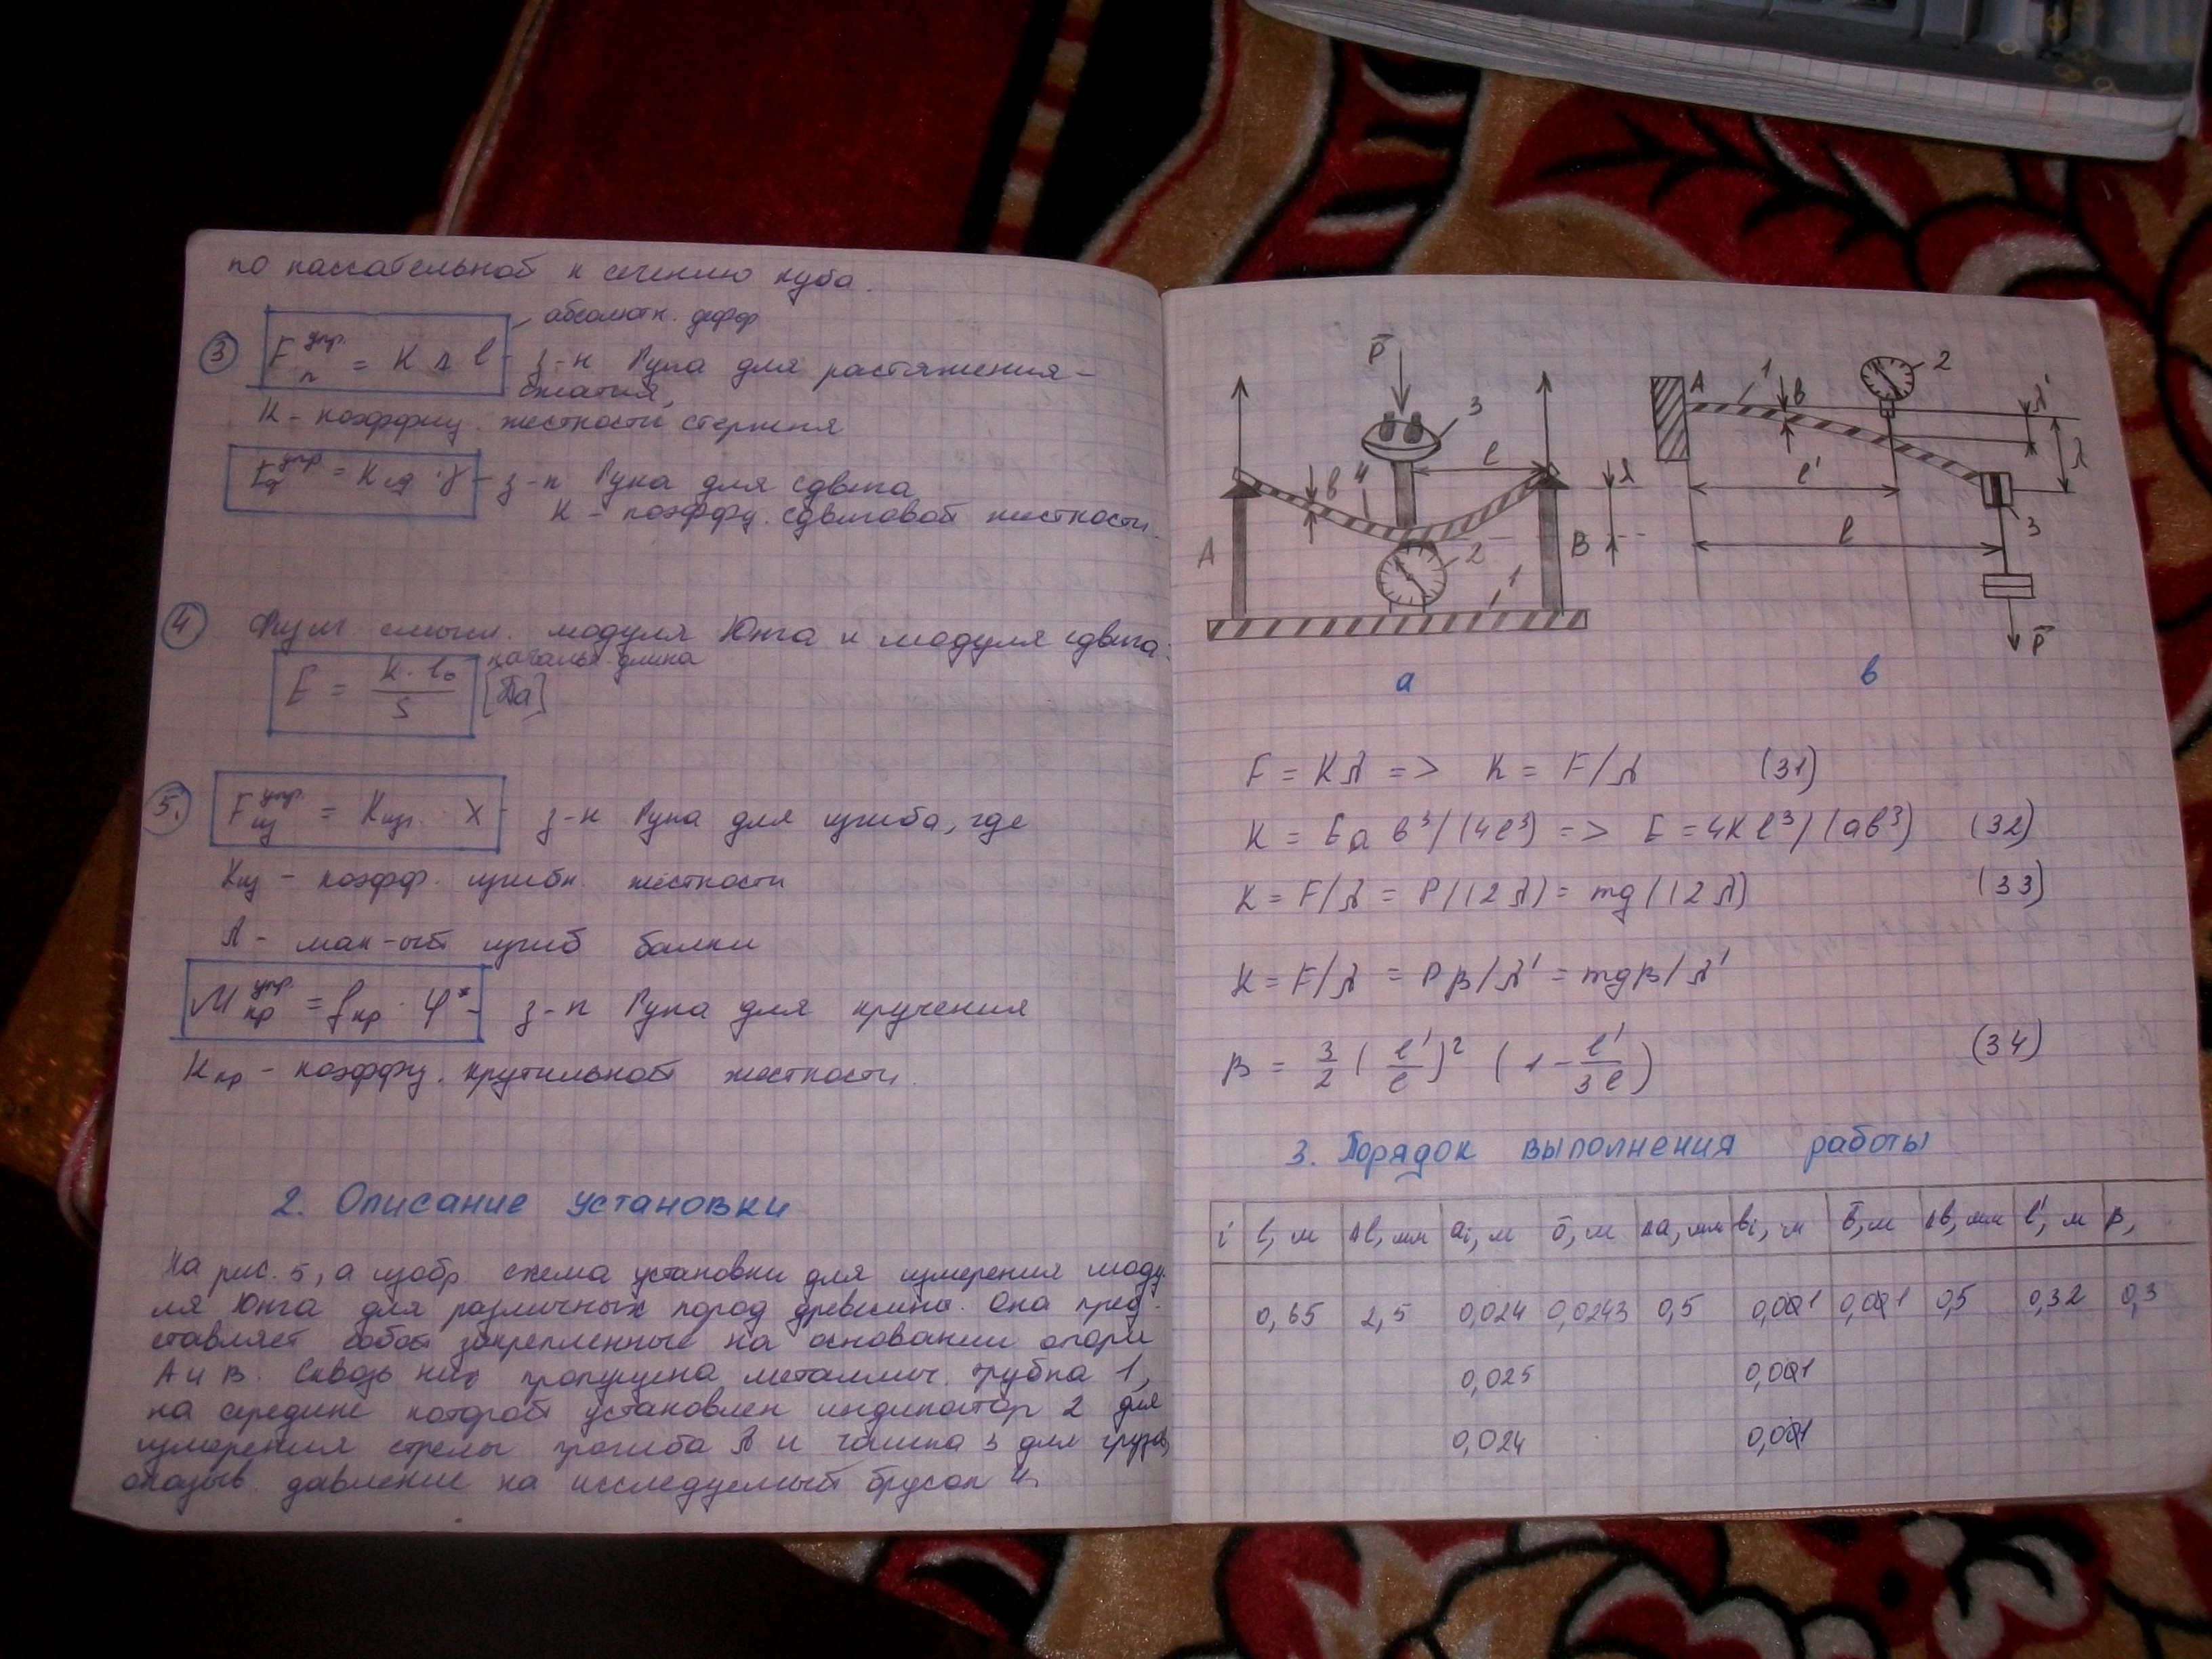 по касательной к сечению куба.
абсолютн. дефф
③ F упр. п = К Δ l - з-н Гука для растяжения-
сжатия,
К - коэффиц. жесткости стержня
F упр = К сд · γ - з-н Гука для сдвига
К - коэффиц. сдвиговой жесткости.
④ Физич. смысл. модуля Юнга и модуля сдвига:
E = К · l₀ / S начальн. длина [Па]
⑤ F упр. из = Kизг. · X - з-н Гука для изгиба, где
Kиз - коэфф. изгибн. жесткости
λ - мак-ый изгиб балки
M упр. кр = fкр · φ* - з-н Гука для кручения
Kкр - коэффиц. крутильной жесткости.
2. Описание установки
На рис. 5, а изобр. схема установки для измерения моду-
ля Юнга для различных пород древесины. Она пред-
ставляет собой закрепленные на основании опоры
А и В. Сквозь них пропущена металлич. трубка 1,
на середине которой установлен индикатор 2 для
измерения стрелы прогиба λ и чашка 3 для грузов,
оказыв. давление на исследуемый брусок 4.
P̄ 3 l λ в 4 А В 2 1
а
А 1 в 2 λ' λ l' l 3 P̄
в
F = Kλ => K = F/λ (31)
K = Eaв³/(4l³) => E = 4Kl³/(aв³) (32)
K = F/λ = P/(2λ) = mg/(2λ) (33)
K = F/λ = Pβ/λ' = mgβ/λ'
β = 3/2 (l'/l)² (1 - l'/3l) (34)
3. Порядок выполнения работы
i l, м Δl, мм ai, м ā, м Δa, мм вi, м в̄, м Δв, мм l', м β,
0,65 2,5 0,024 0,0243 0,5 0,001 0,001 0,5 0,32 0,3
0,025 0,001
0,024 0,001